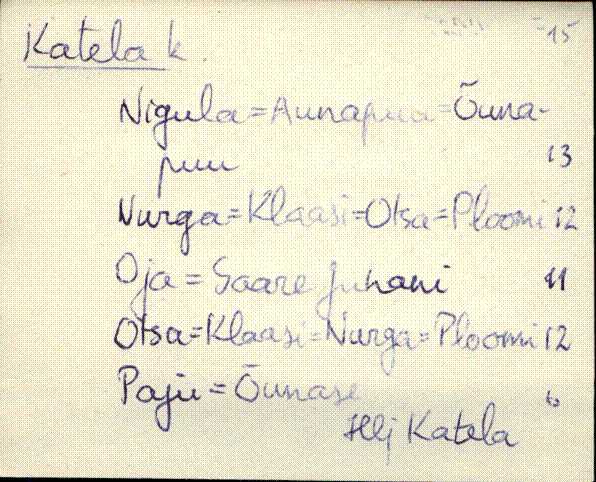 Katela k. 15
Nigula=Aunapuu=Õuna-
puu 13
Nurga=Klaasi=Otsa=Ploomi 12
Oja=Saare Juhani 11
Otsa=Klaasi=Nurga=Ploomi 12
Paju=Õunase
Hlj Katela